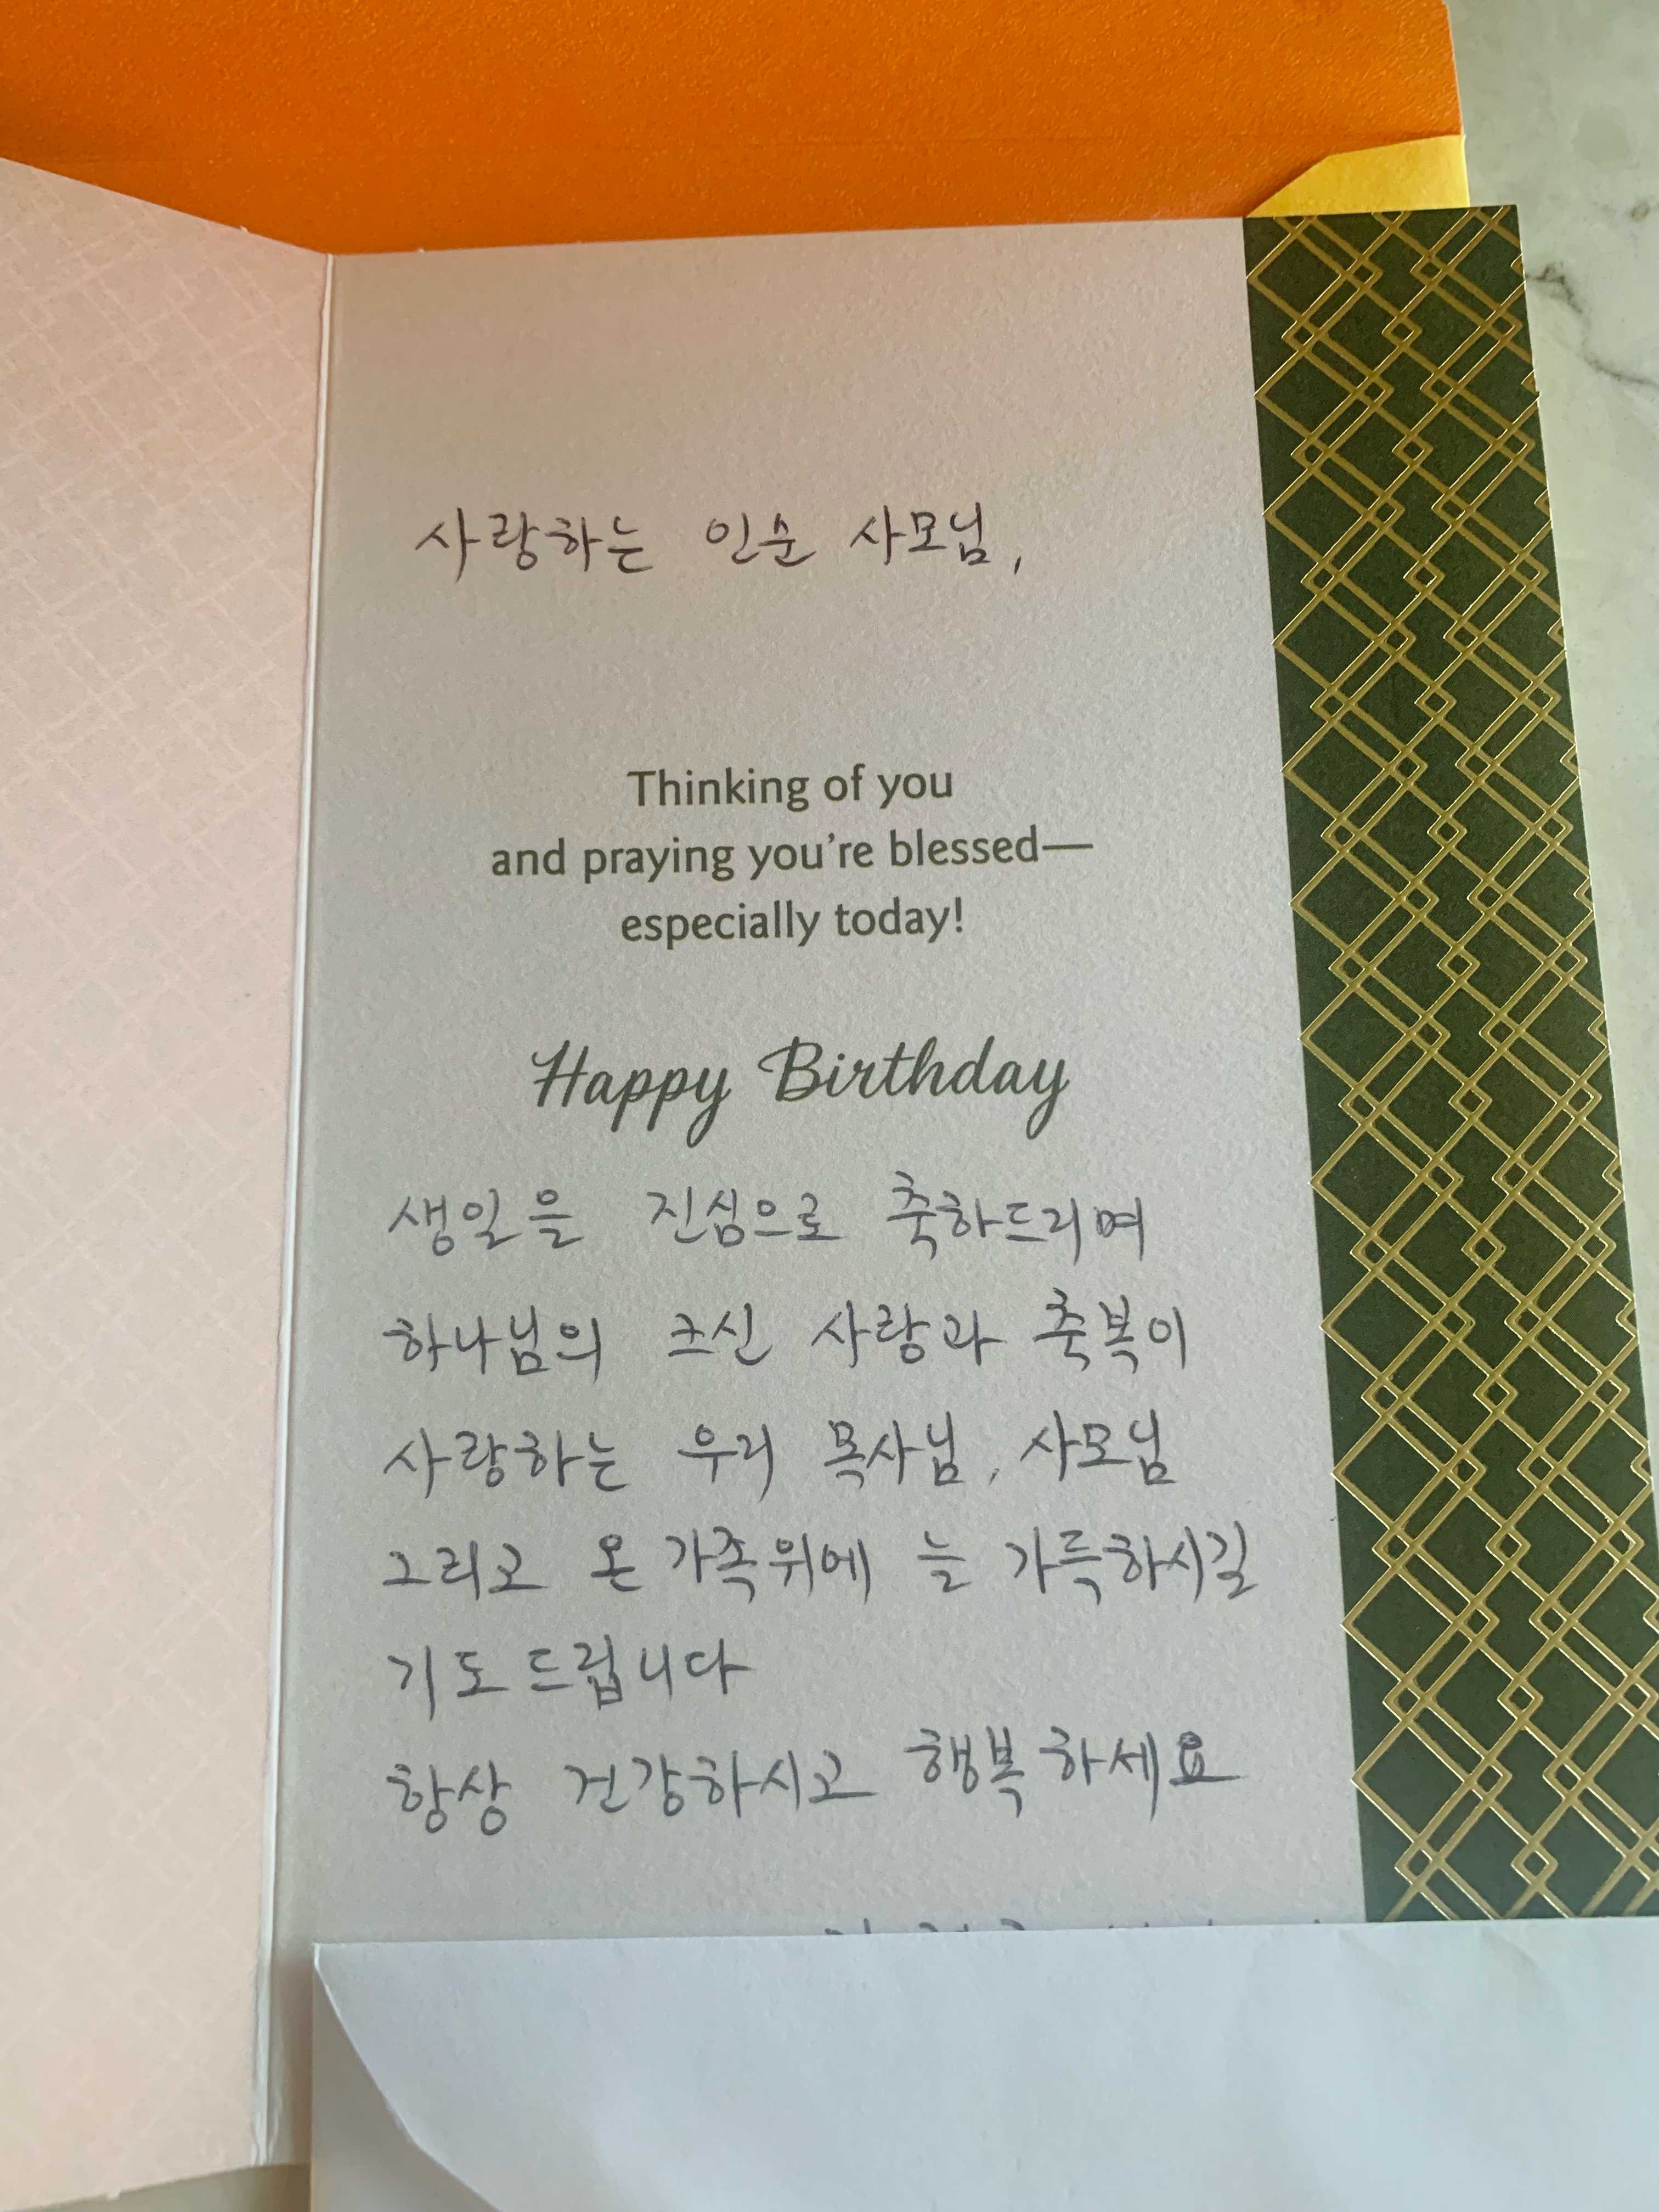 사랑하는 인순 사모님,
Thinking of you
and praying you're blessed—
especially today!
Happy Birthday
생일을 진심으로 축하드리며
하나님의 크신 사랑과 축복이
사랑하는 우리 목사님, 사모님
그리고 온 가족위에 늘 가득하시길
기도드립니다
항상 건강하시고 행복하세요